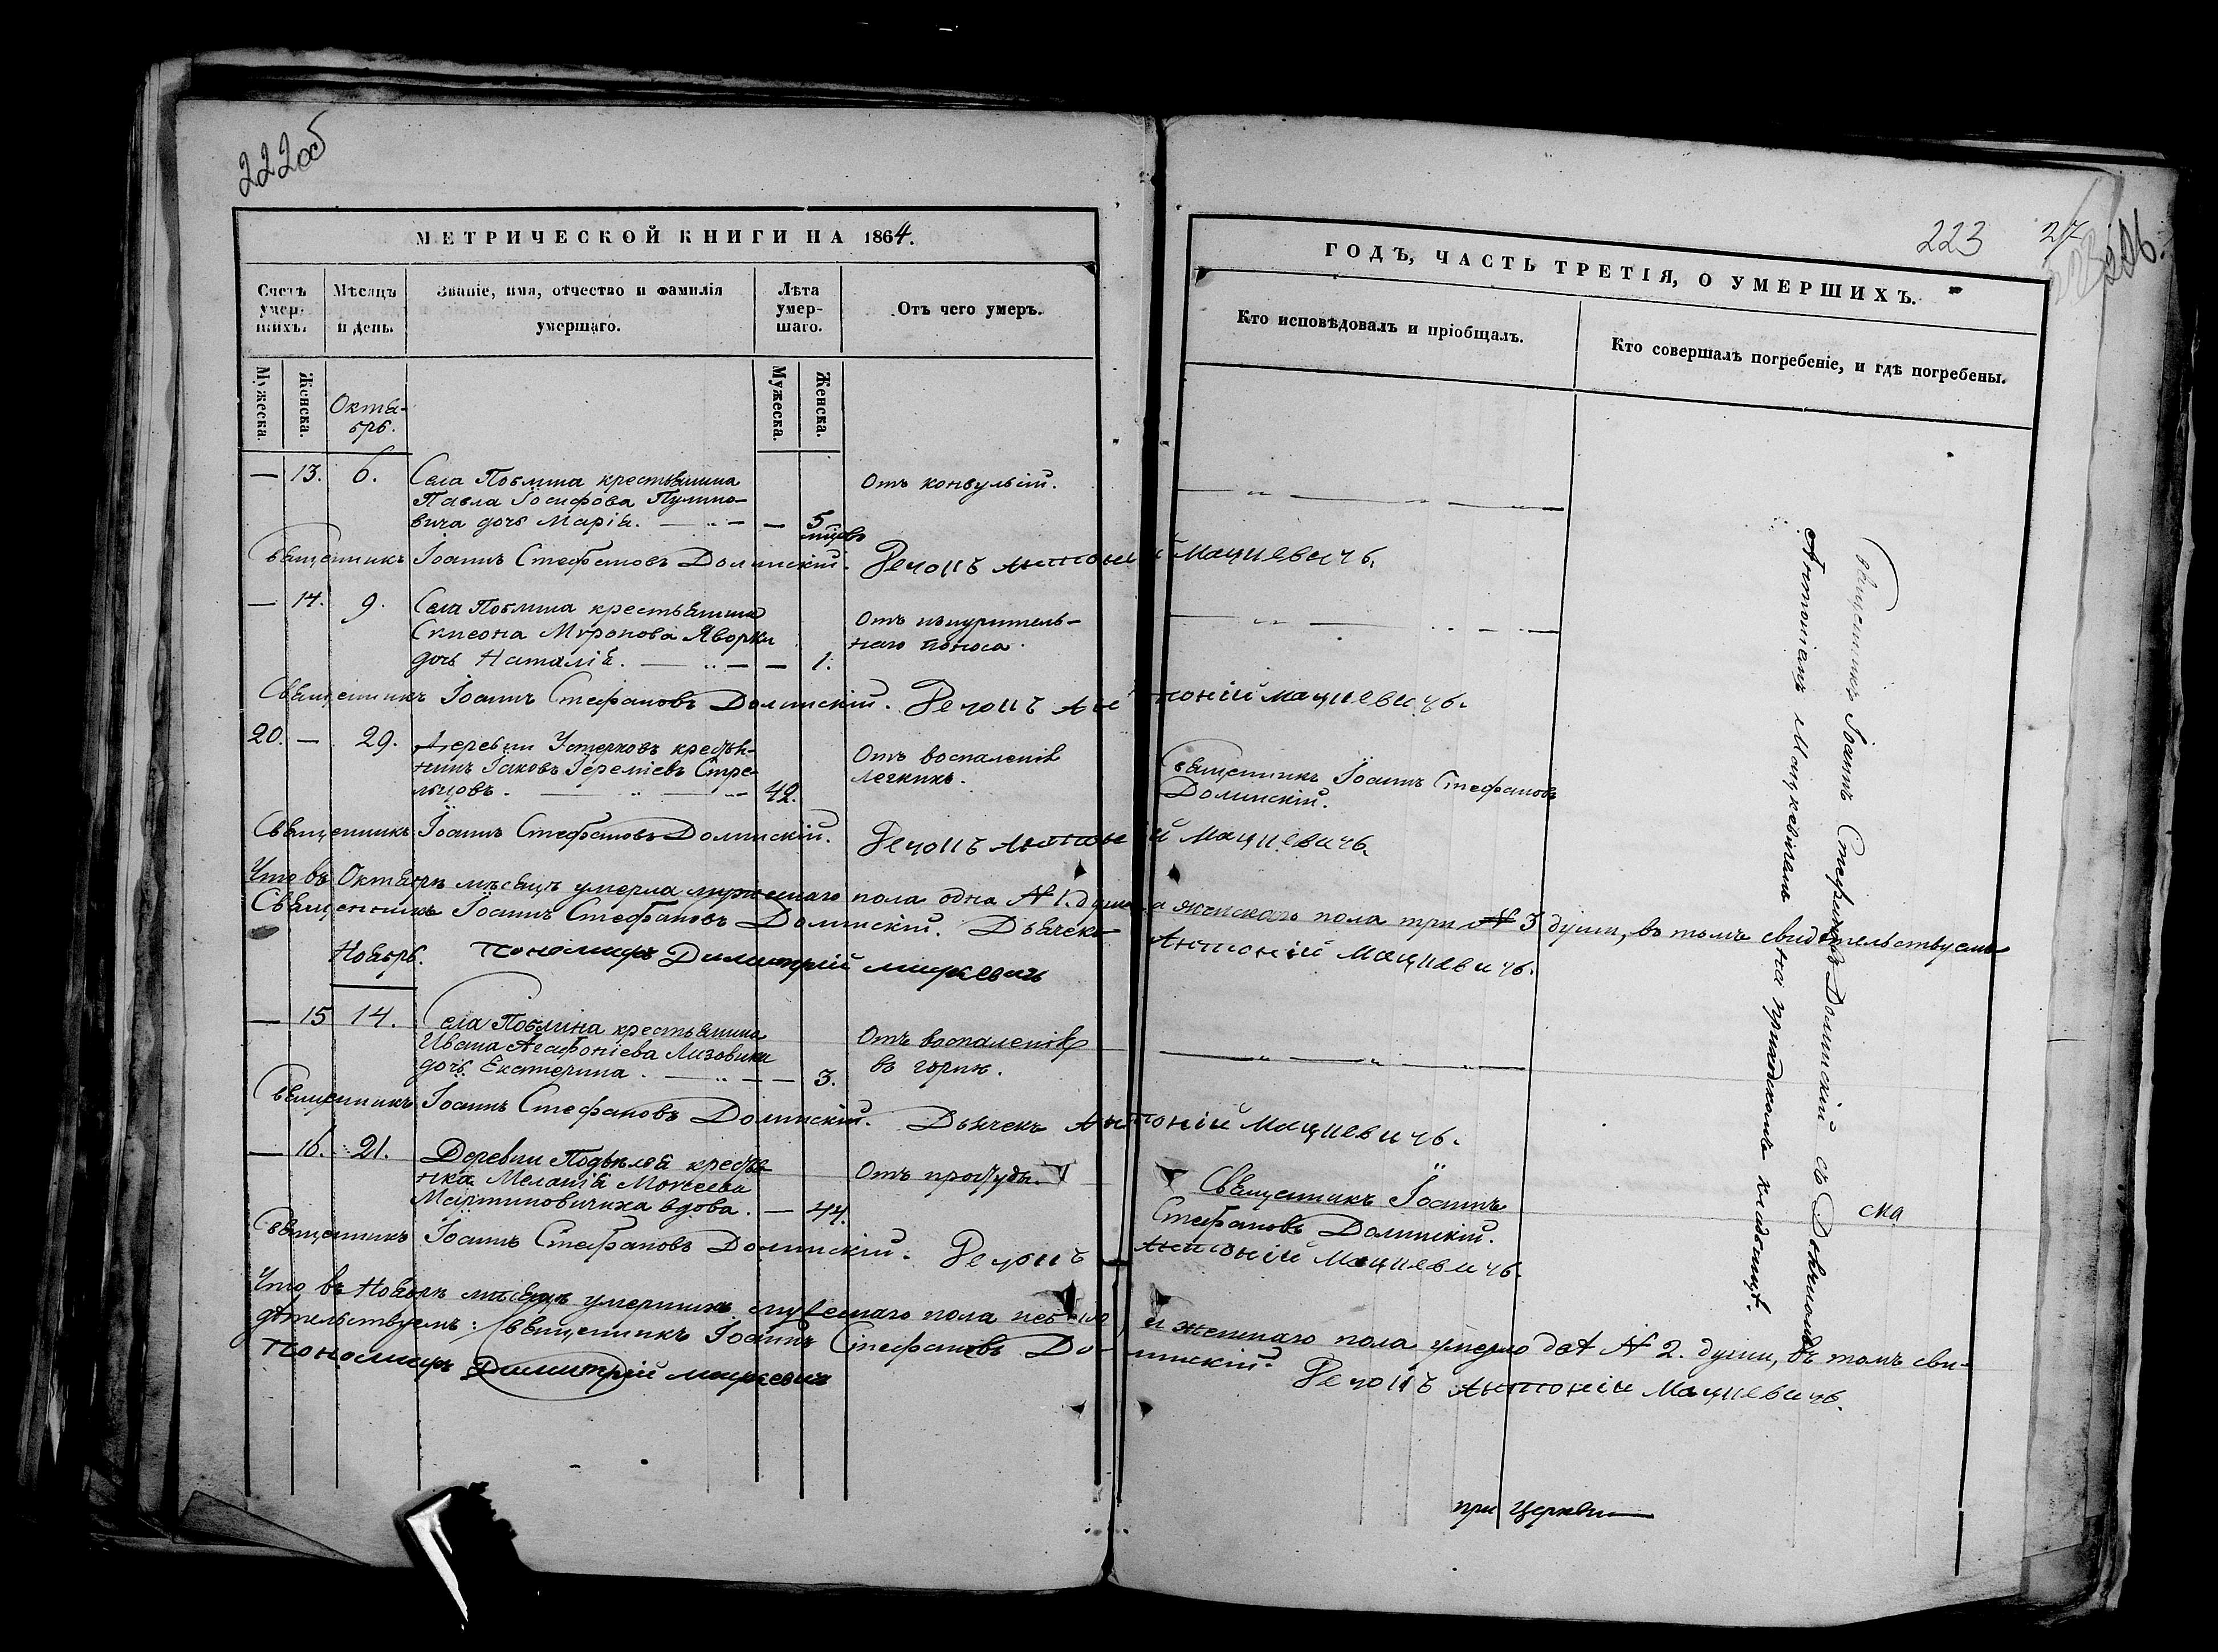 222об
МЕТРИЧЕСКОЙ КНИГИ НА 1864.
Счетъ умер- шихъ.
Мѣсяцъ и день.
Званіе, имя, отчество и фамилія умершаго.
Лѣта умер- шаго.
Отъ чего умеръ.
Мужеска.
Женска.
Мужеска.
Женска.
Октя-
брь.
— 13. 6. Села Поблина крестьянина
Павла Іосифова
вича дочь Марія. — — 5
Отъ конвульсій.
Священникъ Іоаннъ Стефановъ Долинскій. Антоній Мациевичъ.
— 14. 9. Села Поблина крестьянина
Симеона Миронова Яворки
дочь Наталія. — — 1.
Отъ изнуритель-
наго поноса.
Священникъ Іоаннъ Стефановъ Долинскій. Антоній Мациевичъ.
20. — 29. Деревни крестья-
нинъ Іаковъ Іереміевъ Стре-
льцовъ. — 42.
Отъ воспаленія
легкихъ.
Священникъ Іоаннъ Стефановъ
Долинскій.
Священникъ Іоаннъ Стефановъ Долинскій. Антоній Мациевичъ.
Что въ Октябрѣ мѣсяцѣ умерла мужескаго пола одна № 1. душа, а женскаго пола три № 3 души, въ томъ свидѣтельствуемъ
Священникъ Іоаннъ Стефановъ Долинскій. Дьячекъ Антоній Мациевичъ.
Ноябрь. Пономарь Димитрій
— 15 14. Села Поблина крестьянина
Ивана Агафоніева
дочь Екатерина. — — 3.
Отъ воспаленія
въ горлѣ.
Священникъ Іоаннъ Стефановъ Долинскій. Дьячекъ Антоній Мациевичъ.
— 16. 21. Деревни крестья-
нка Меланія Моисеева
Мартиновичиха вдова. — 44.
Отъ простуды.
Священникъ Іоаннъ
Стефановъ Долинскій.
Священникъ Іоаннъ Стефановъ Долинскій. Антоній Мациевичъ.
Что въ Ноябрѣ мѣсяцѣ умершихъ мужескаго пола небыло, и женскаго пола умерло двѣ № 2. души, въ томъ сви-
дѣтельствуемъ: Священникъ Іоаннъ Стефановъ Долинскій. Антоній Мациевичъ.
Пономарь Димитрій
223
ГОДЪ, ЧАСТЬ ТРЕТІЯ, О УМЕРШИХЪ.
Кто исповѣдовалъ и пріобщалъ.
Кто совершалъ погребеніе, и гдѣ погребены.
Священникъ Іоаннъ Стефановъ Долинскій съ Дьячкомъ
Антоніемъ на приходскомъ кладбищѣ.
при Церкви